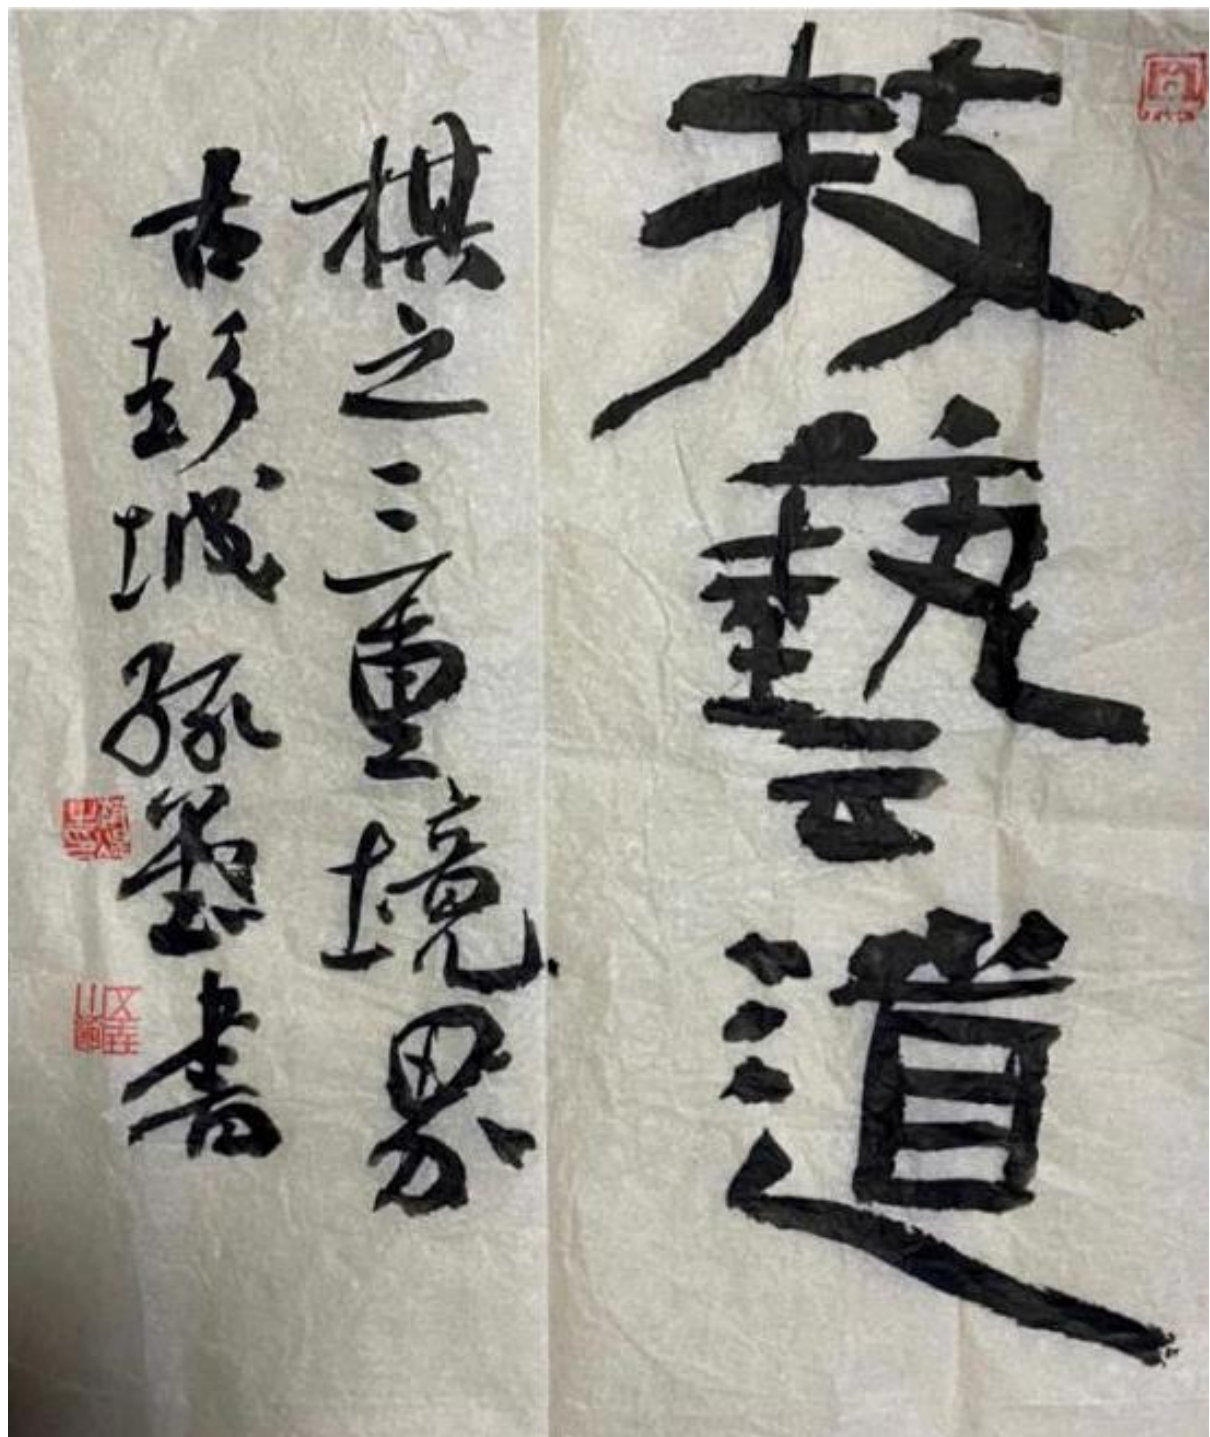 技藝道
棋之三重境界
古彭城孫墨書